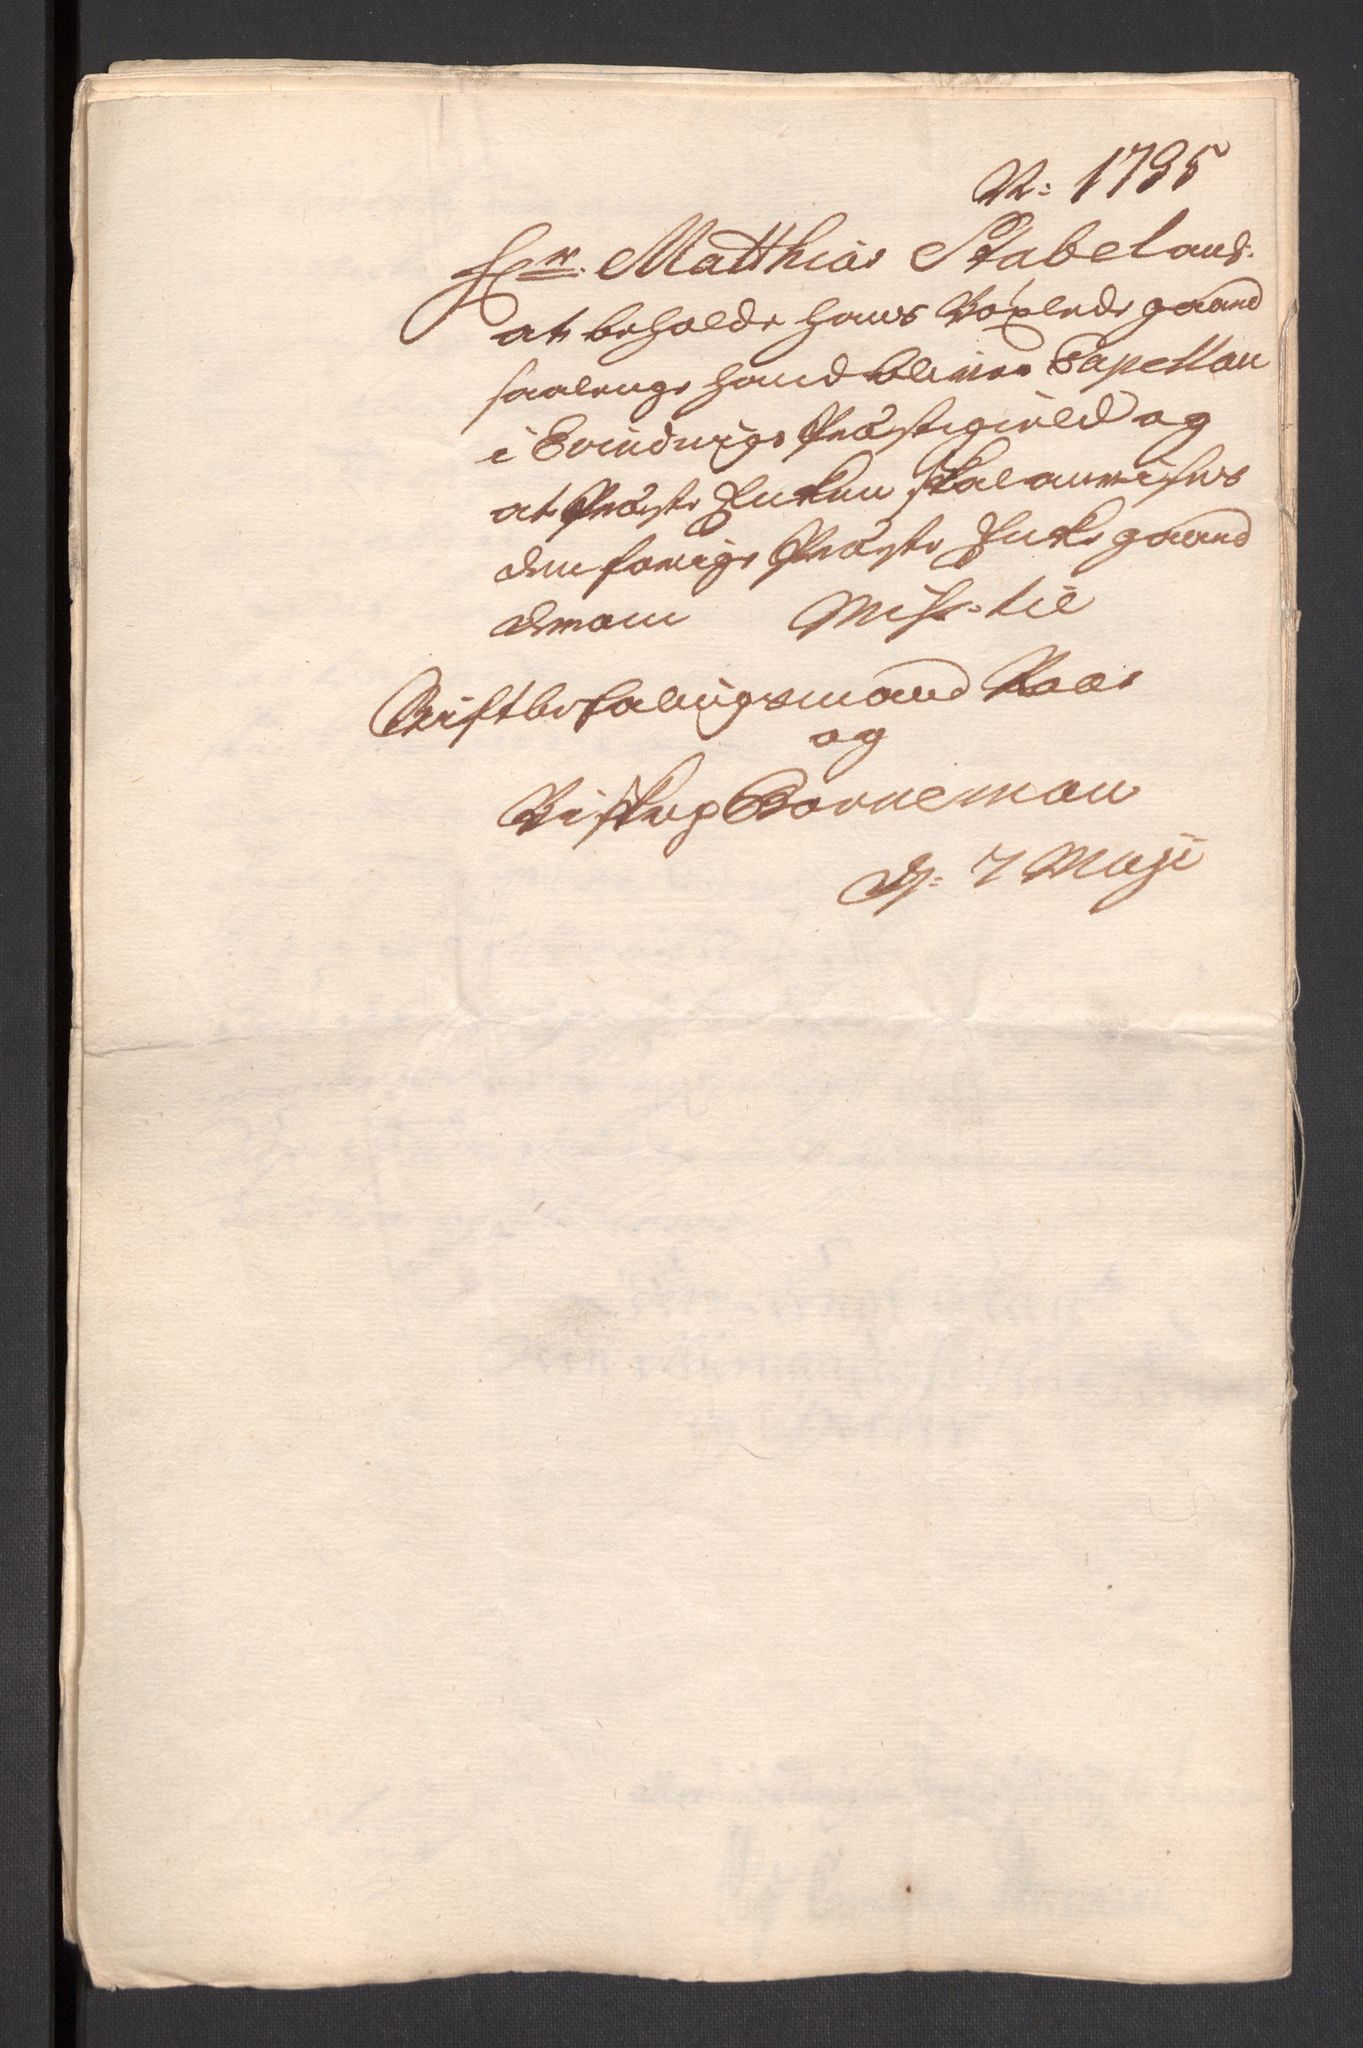 N: 1735
Hr. Matthias Stabel and:
at beholde hans Böxlede gaard
saalenge hand bliver Capellan
i Evindvigs Præstegield og
at Præste Enken skal anvises
den forrige Præste Enke gaard
dersom Miss: til
Stiftbefalingsmand Kaas
og
Biskop Bornemann
d: 7 Maji